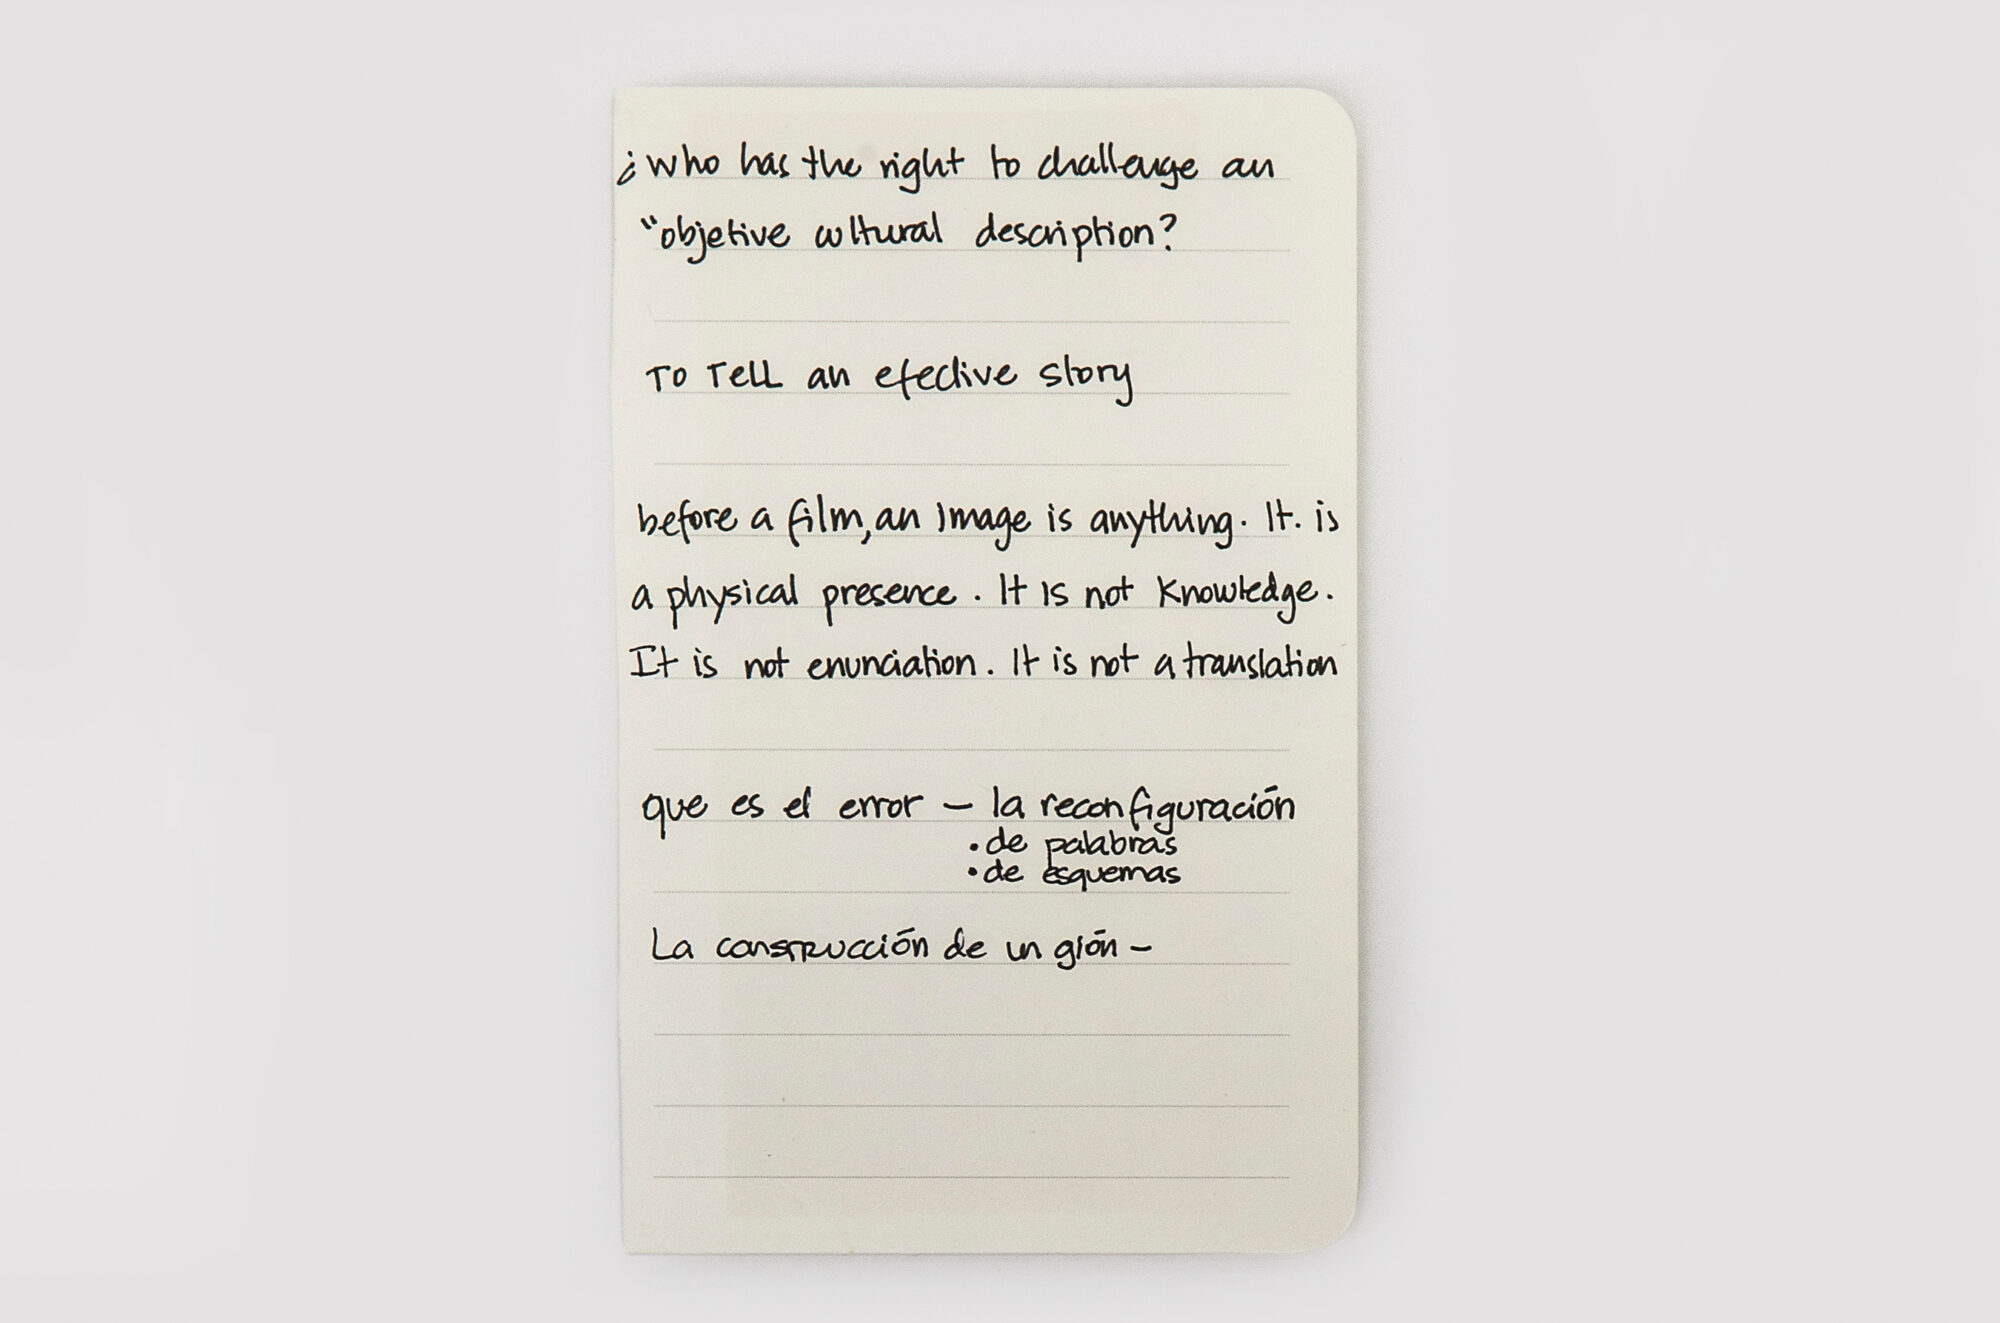 ¿who has the right to challenge an
"objetive cultural description?
TO TELL an efective story
before a film, an image is anything. It. is
a physical presence. It is not knowledge.
It is not enunciation. It is not a translation
que es el error – la reconfiguración
• de palabras
• de esquemas
La construcción de un gión –